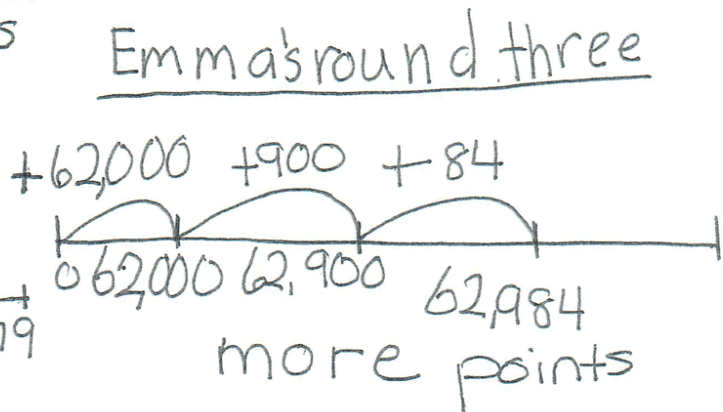 s
Emma's round three
+62,000 +900 +84
0 62,000 62,900
62,984
19
more points